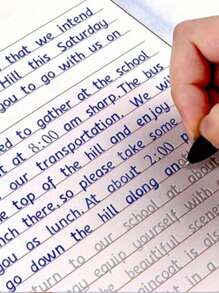 that we intend
Hill this Saturday
you to go with us on
ed to gather at the school
at 8:00 am sharp. The bus
our transportation. We wi
e top of the hill and enjoy
nch there, so please take some
you as lunch. At about 2:00 p
go down the hill along ano
turn to our school at abou
ay equip yourself with
he beautiful scene
raincoat is als